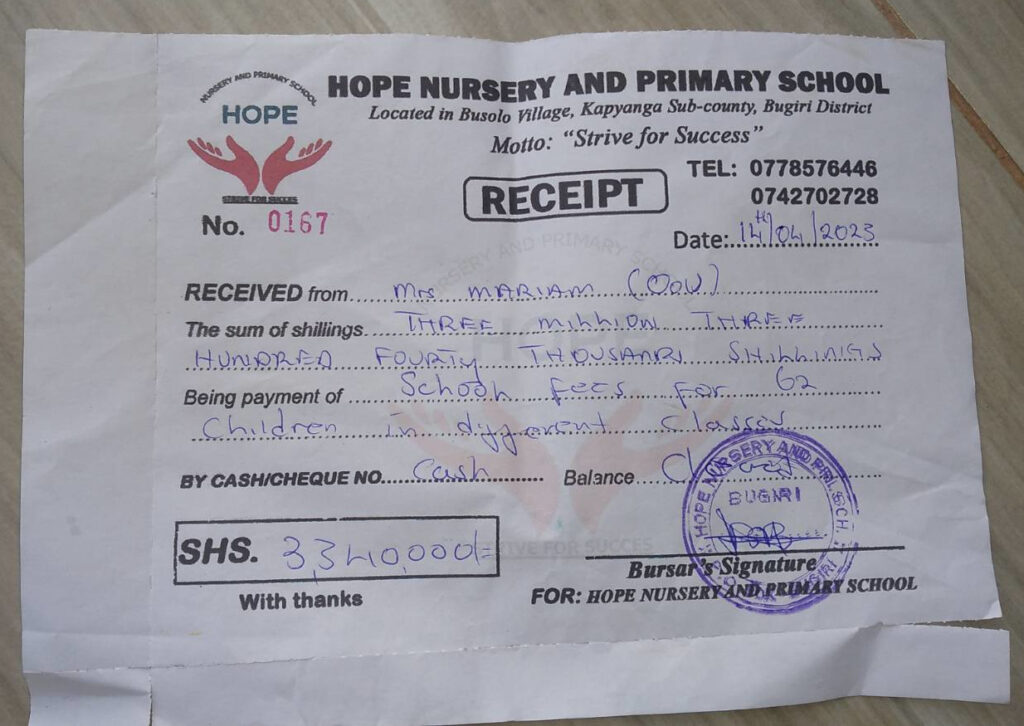 NURSERY AND PRIMARY SCHOOL
HOPE
STRIVE FOR SUCCES
HOPE NURSERY AND PRIMARY SCHOOL
Located in Busolo Village, Kapyanga Sub-county, Bugiri District
Motto: "Strive for Success"
TEL: 0778576446
0742702728
RECEIPT
No. 0167
Date: 14th/04/2023
RECEIVED from Mrs MARIAM (OOU)
The sum of shillings THREE MILLION THREE
HUNDRED FOURTY THOUSAND SHILLINGS
Being payment of School fees for 62
Children in different classes
BY CASH/CHEQUE NO. Cash Balance
HOPE NURSERY AND PRI. SCH.
BUGIRI
SHS. 3,340,000/=
STRIVE FOR SUCCES
Bursar's Signature
With thanks
FOR: HOPE NURSERY AND PRIMARY SCHOOL